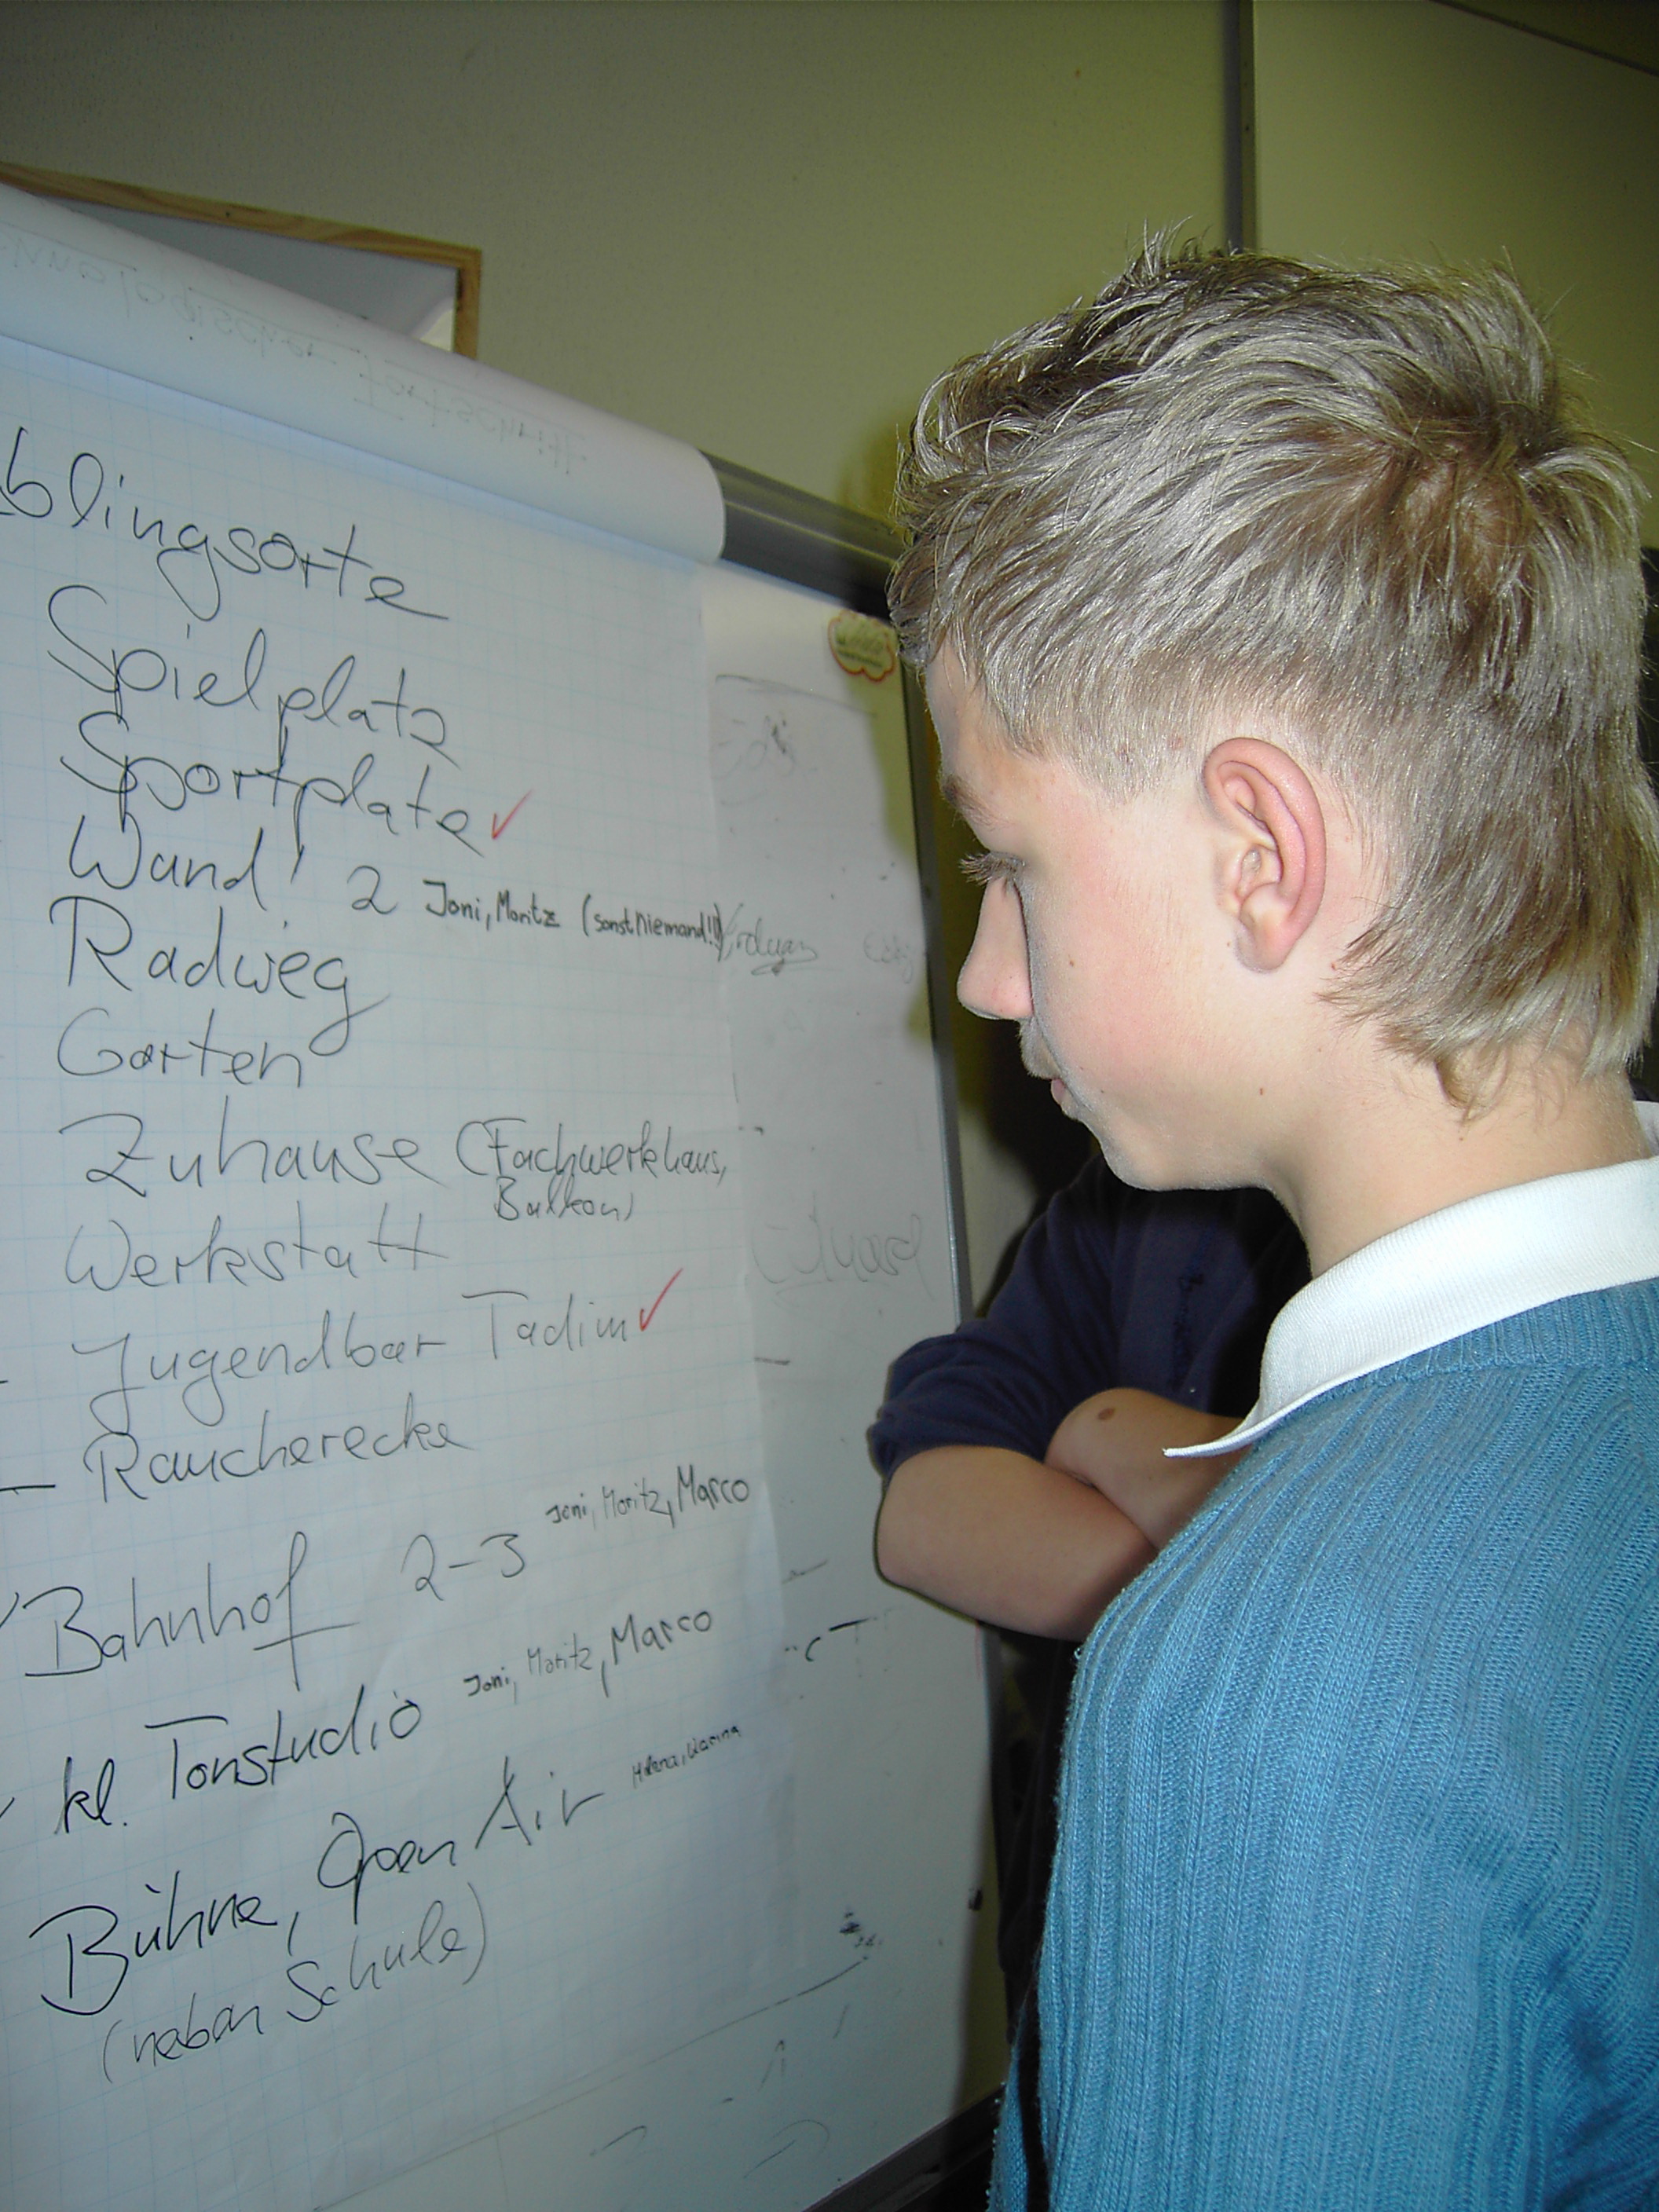 blingsorte
Spielplatz
Sportplatz ✓
Wand! 2 Joni, Moritz (sonst niemand!!)
Radweg
Garten
Zuhause (Fachwerkhaus,
Balkon)
Werkstatt
Jugendbar Tadim ✓
Raucherecke
Bahnhof 2-3 Joni, Moritz, Marco
kl. Tonstudio Joni, Moritz, Marco
Bühne, Open Air Helena,
(neben Schule)